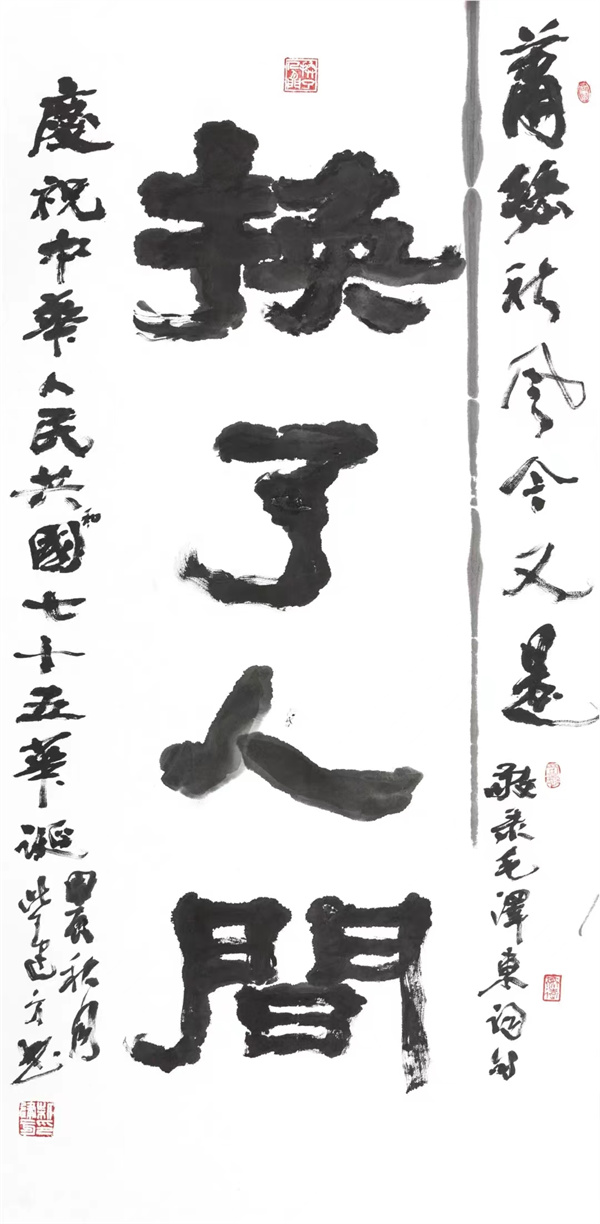 蕭瑟秋风今又是
敬录毛澤東詞句
换了人間
慶祝中華人民共和國七十五華誕
甲辰秋月
柴建方书